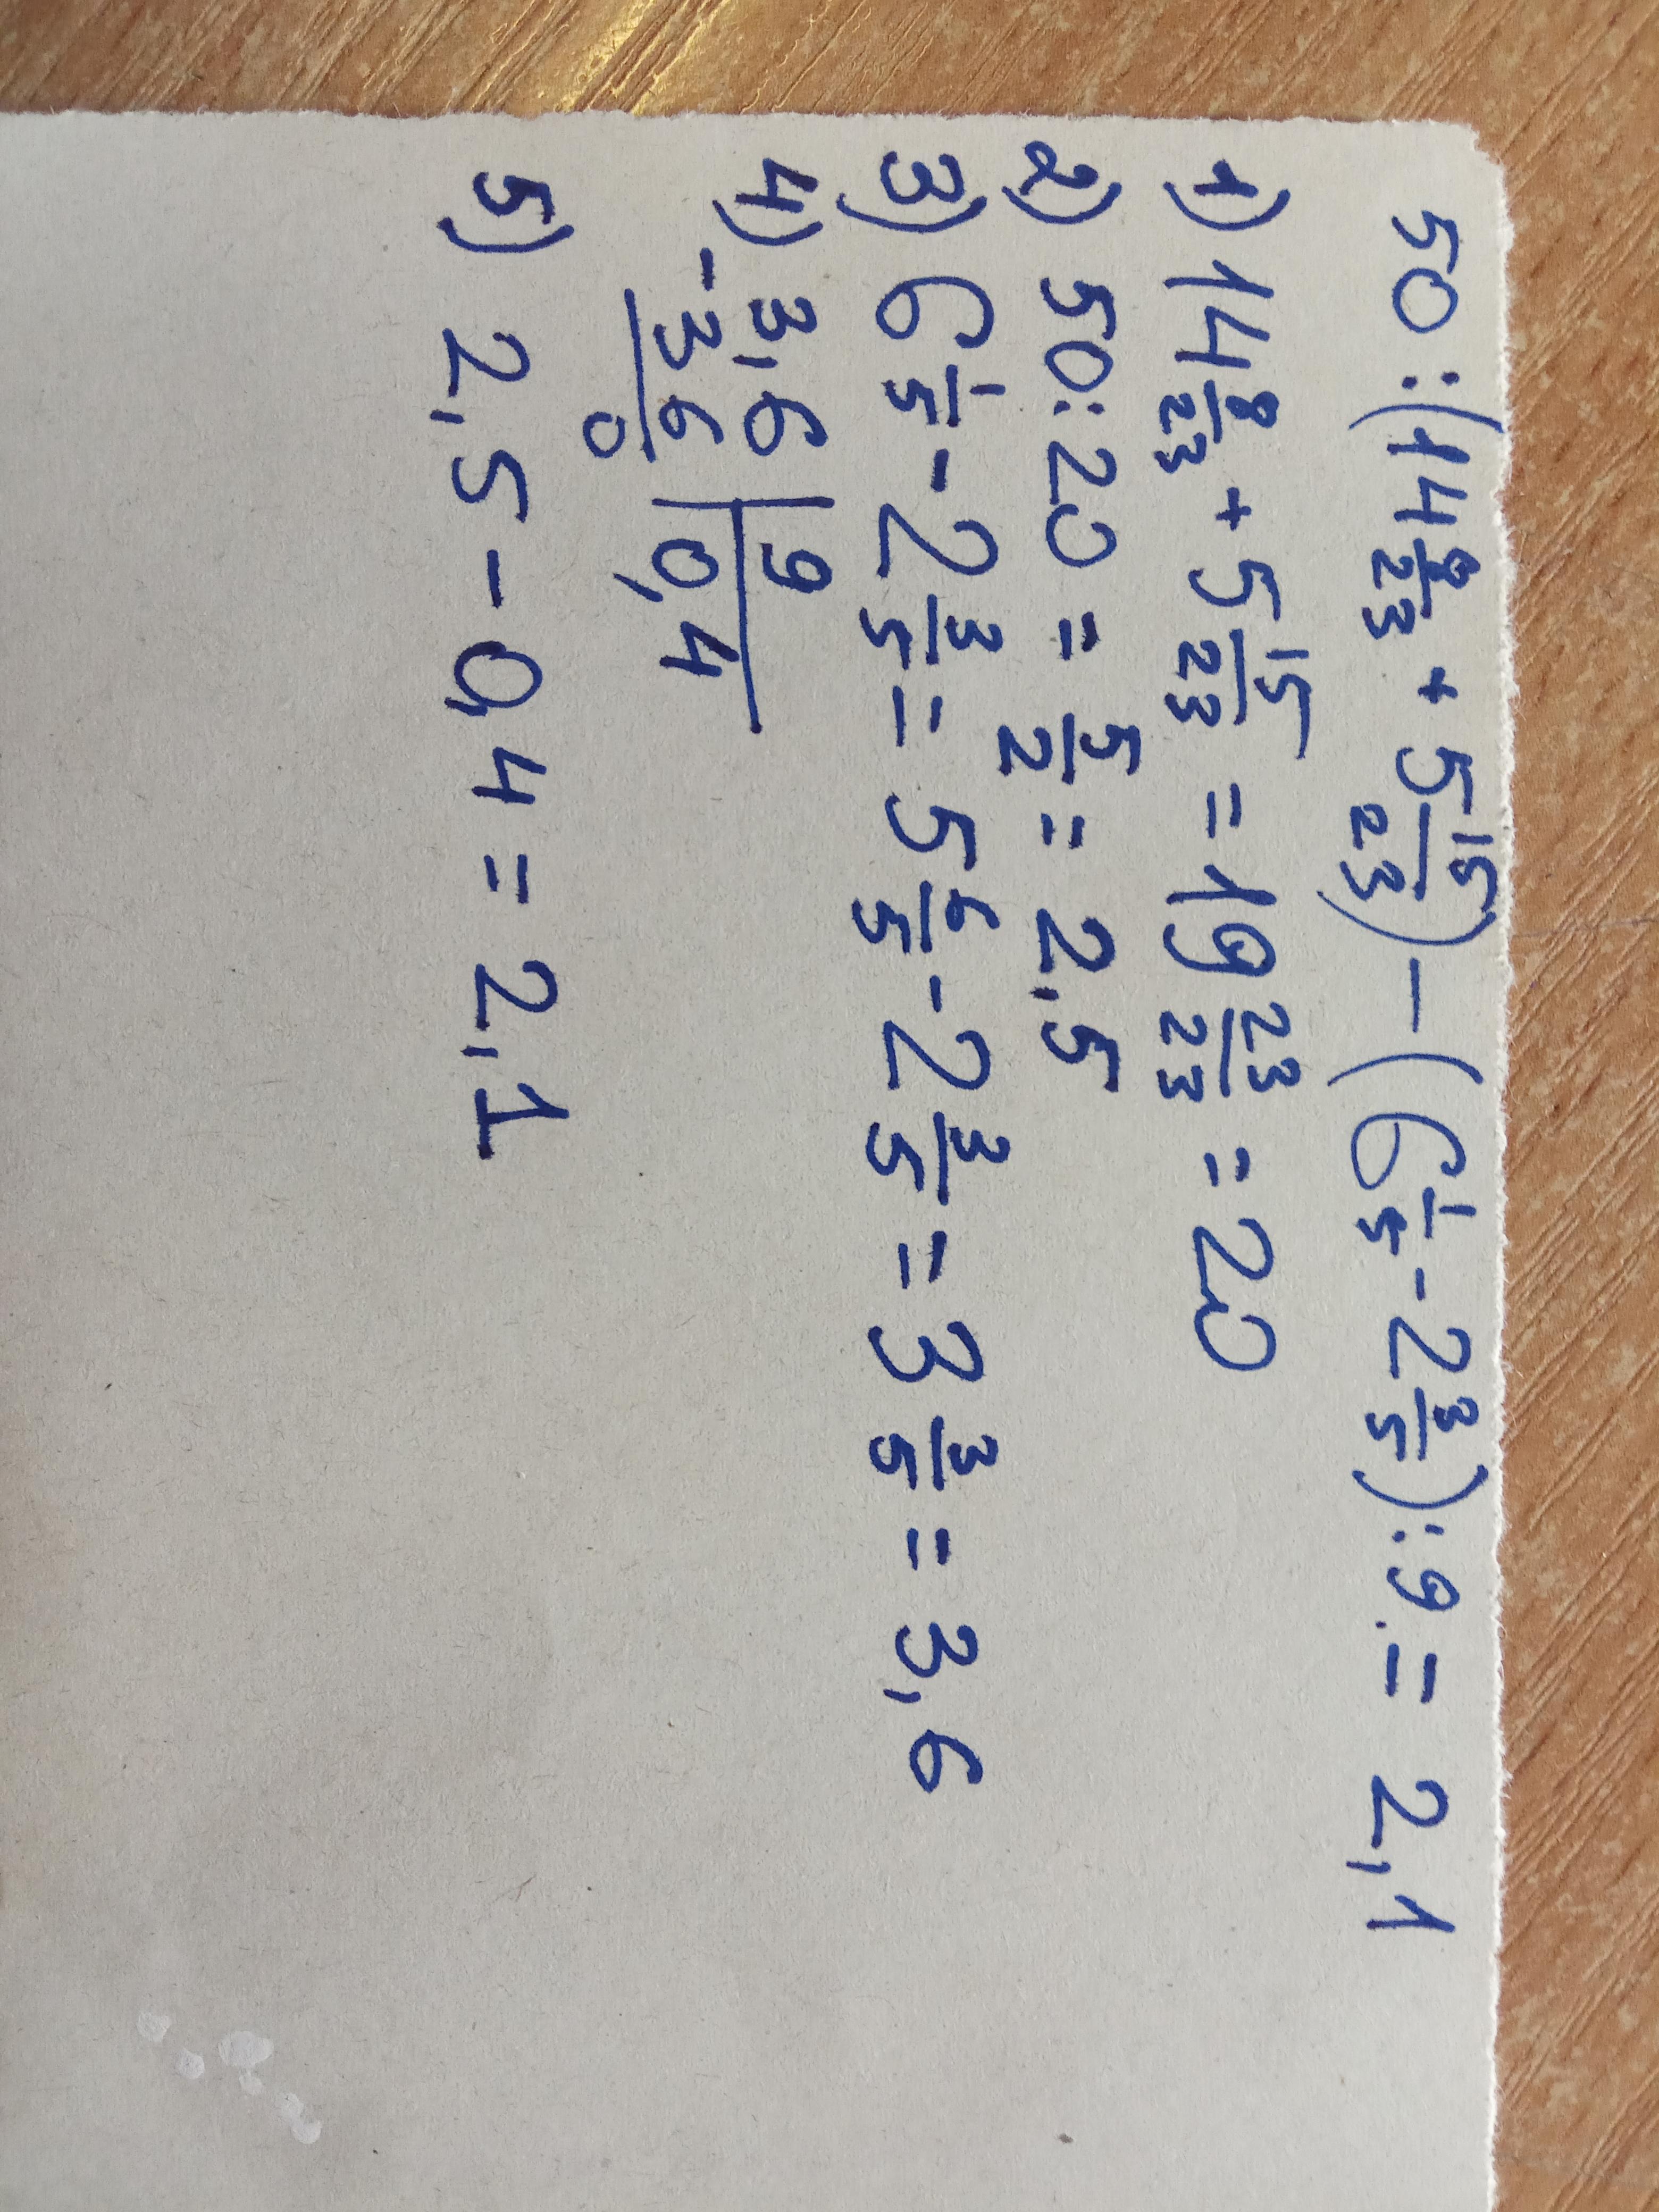 50 : (14 8/23 + 5 15/23) - (6 1/5 - 2 3/5) : 9 = 2,1
1) 14 8/23 + 5 15/23 = 19 23/23 = 20
2) 50 : 20 = 5/2 = 2,5
3) 6 1/5 - 2 3/5 = 5 6/5 - 2 3/5 = 3 3/5 = 3,6
4) 3,6 | 9
- 36 | 0,4
0
5) 2,5 - 0,4 = 2,1